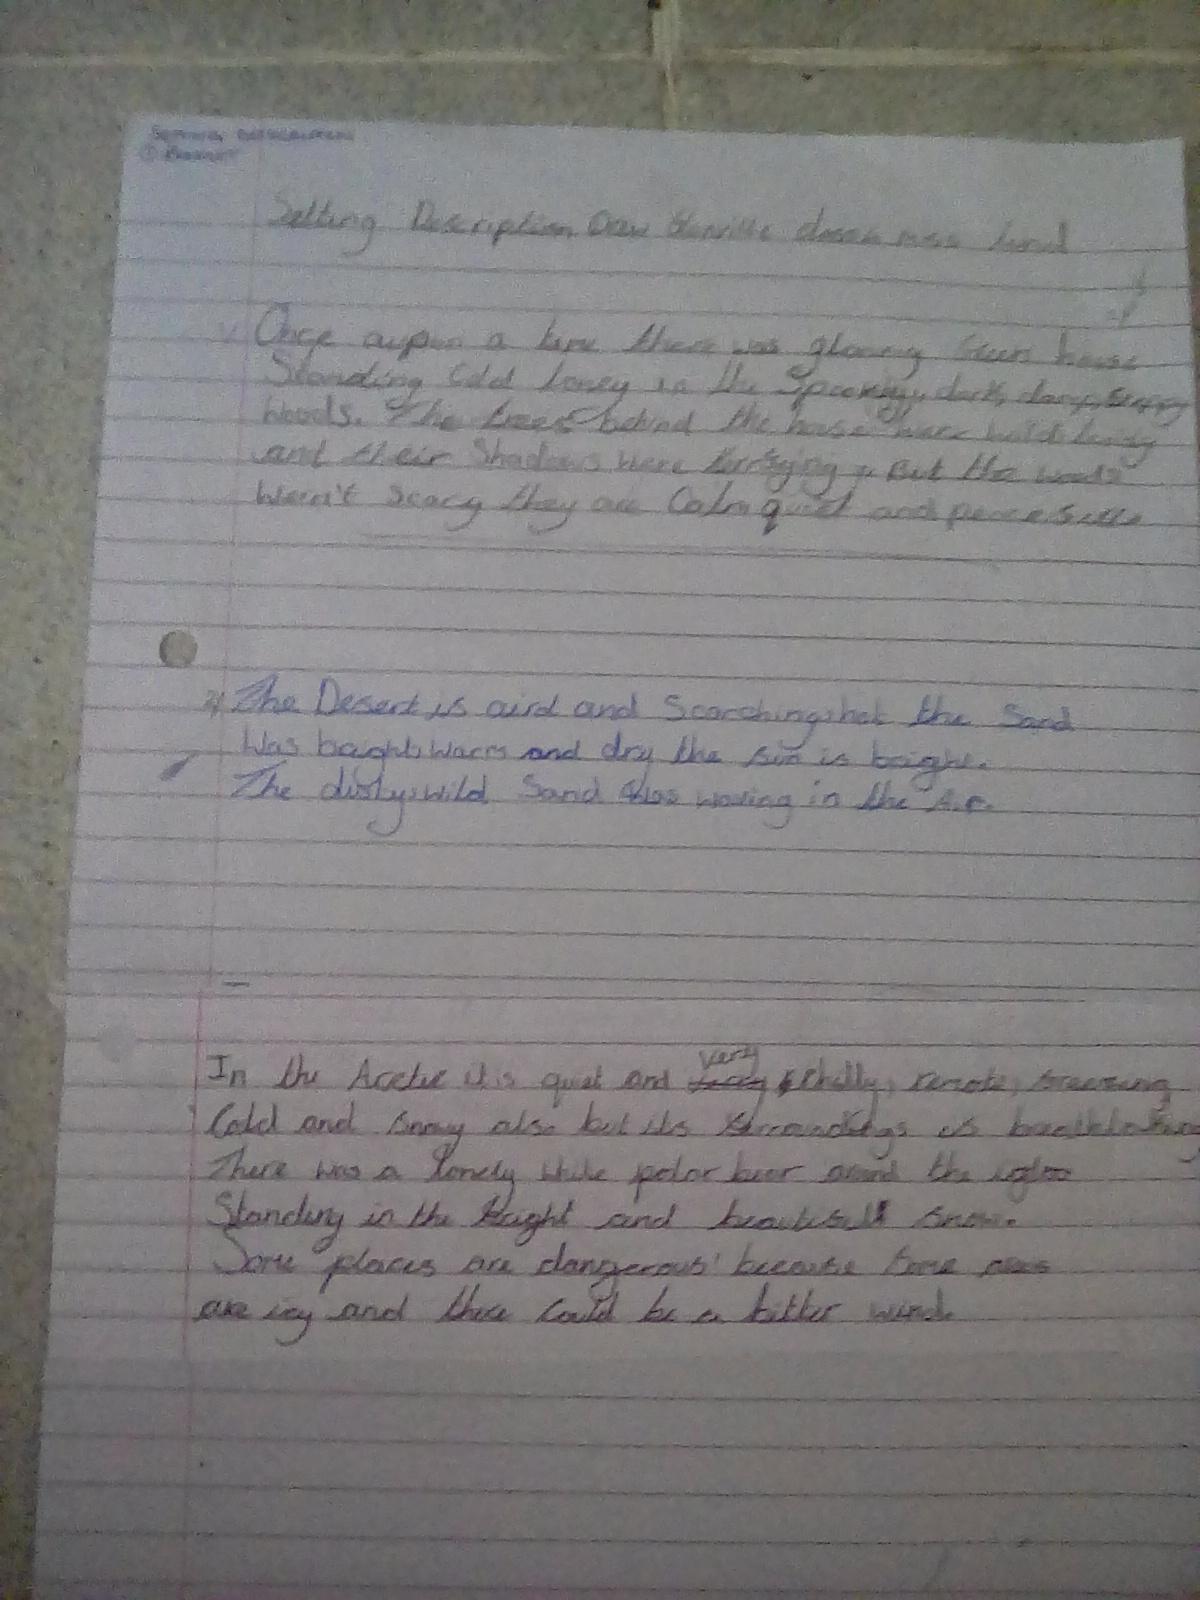 Setting Description
Once aupon a time there was glowing house
Standing Cold loney in the Spooky, dark, damp,
Woods. The trees behind the house were
and their Shadows were terrfying, But the woods
Weren't scary they are Calm quiet and
2) The Desert is aird and Scorching hot the Sand
Was bright, warm and dry the sun is bright.
The dusty, wild Sand was waving in the Air.
very
In the Arctic it is quiet and Chilly, remote, freezing
Cold and Snowy also but its surroundings is breathtaking
There was a lonely white polar bear around the igloo
Standing in the bright and beautifull snow.
Some places are dangerous because some
are icy and there could be a bitter wind.